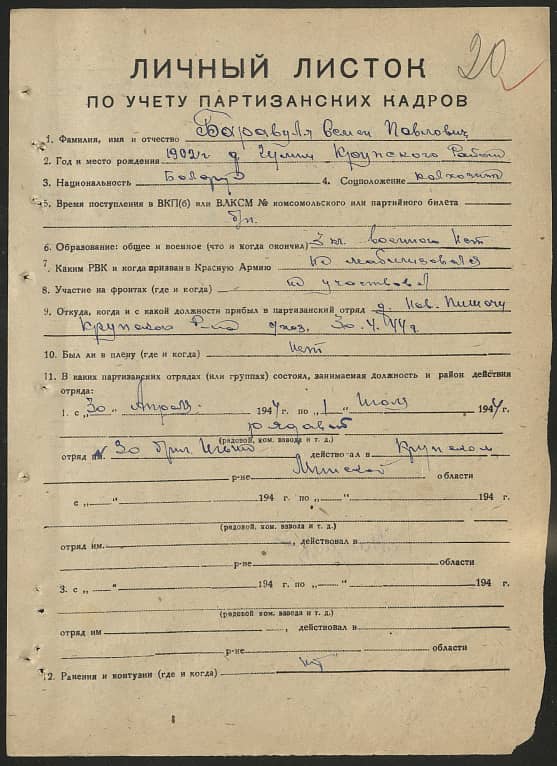 20
ЛИЧНЫЙ ЛИСТОК
ПО УЧЕТУ ПАРТИЗАНСКИХ КАДРОВ
1. Фамилия, имя и отчество Баравуля Семен Павлович
2. Год и место рождения 1902 г д. Крупского Район
3. Национальность 4. Соцположение колхозник
5. Время поступления в ВКП(б) или ВЛКСМ № комсомольского или партийного билета
б/п.
6. Образование: общее и военное (что и когда окончил) 3 кл. военного нет
7. Каким РВК и когда призван в Красную Армию не мобилизовался
8. Участие на фронтах (где и когда) не участвовал
9. Откуда, когда и с какой должности прибыл в партизанский отряд д.
Крупского Р-на 44 г
10. Был ли в плену (где и когда) нет
11. В каких партизанских отрядах (или группах) состоял, занимаемая должность и район действия
отряда:
1. с „30“ Апреля 1944 г. по „1“ Июля 1944 г.
рядовой
(рядовой, ком. взвода и т. д.)
отряд им. № 30 бриг. действовал в Крупском
р-не Минской области
с „—“ 194 г. по „—“ 194 г.
(рядовой, ком. взвода и т. д.)
отряд им. —, действовал в
р-не области
3. с „—“ 194 г. по „—“ 194 г.
(рядовой, ком. взвода и т. д.)
отряд им —, действовал в
р-не области
12. Ранения и контузии (где и когда) нет